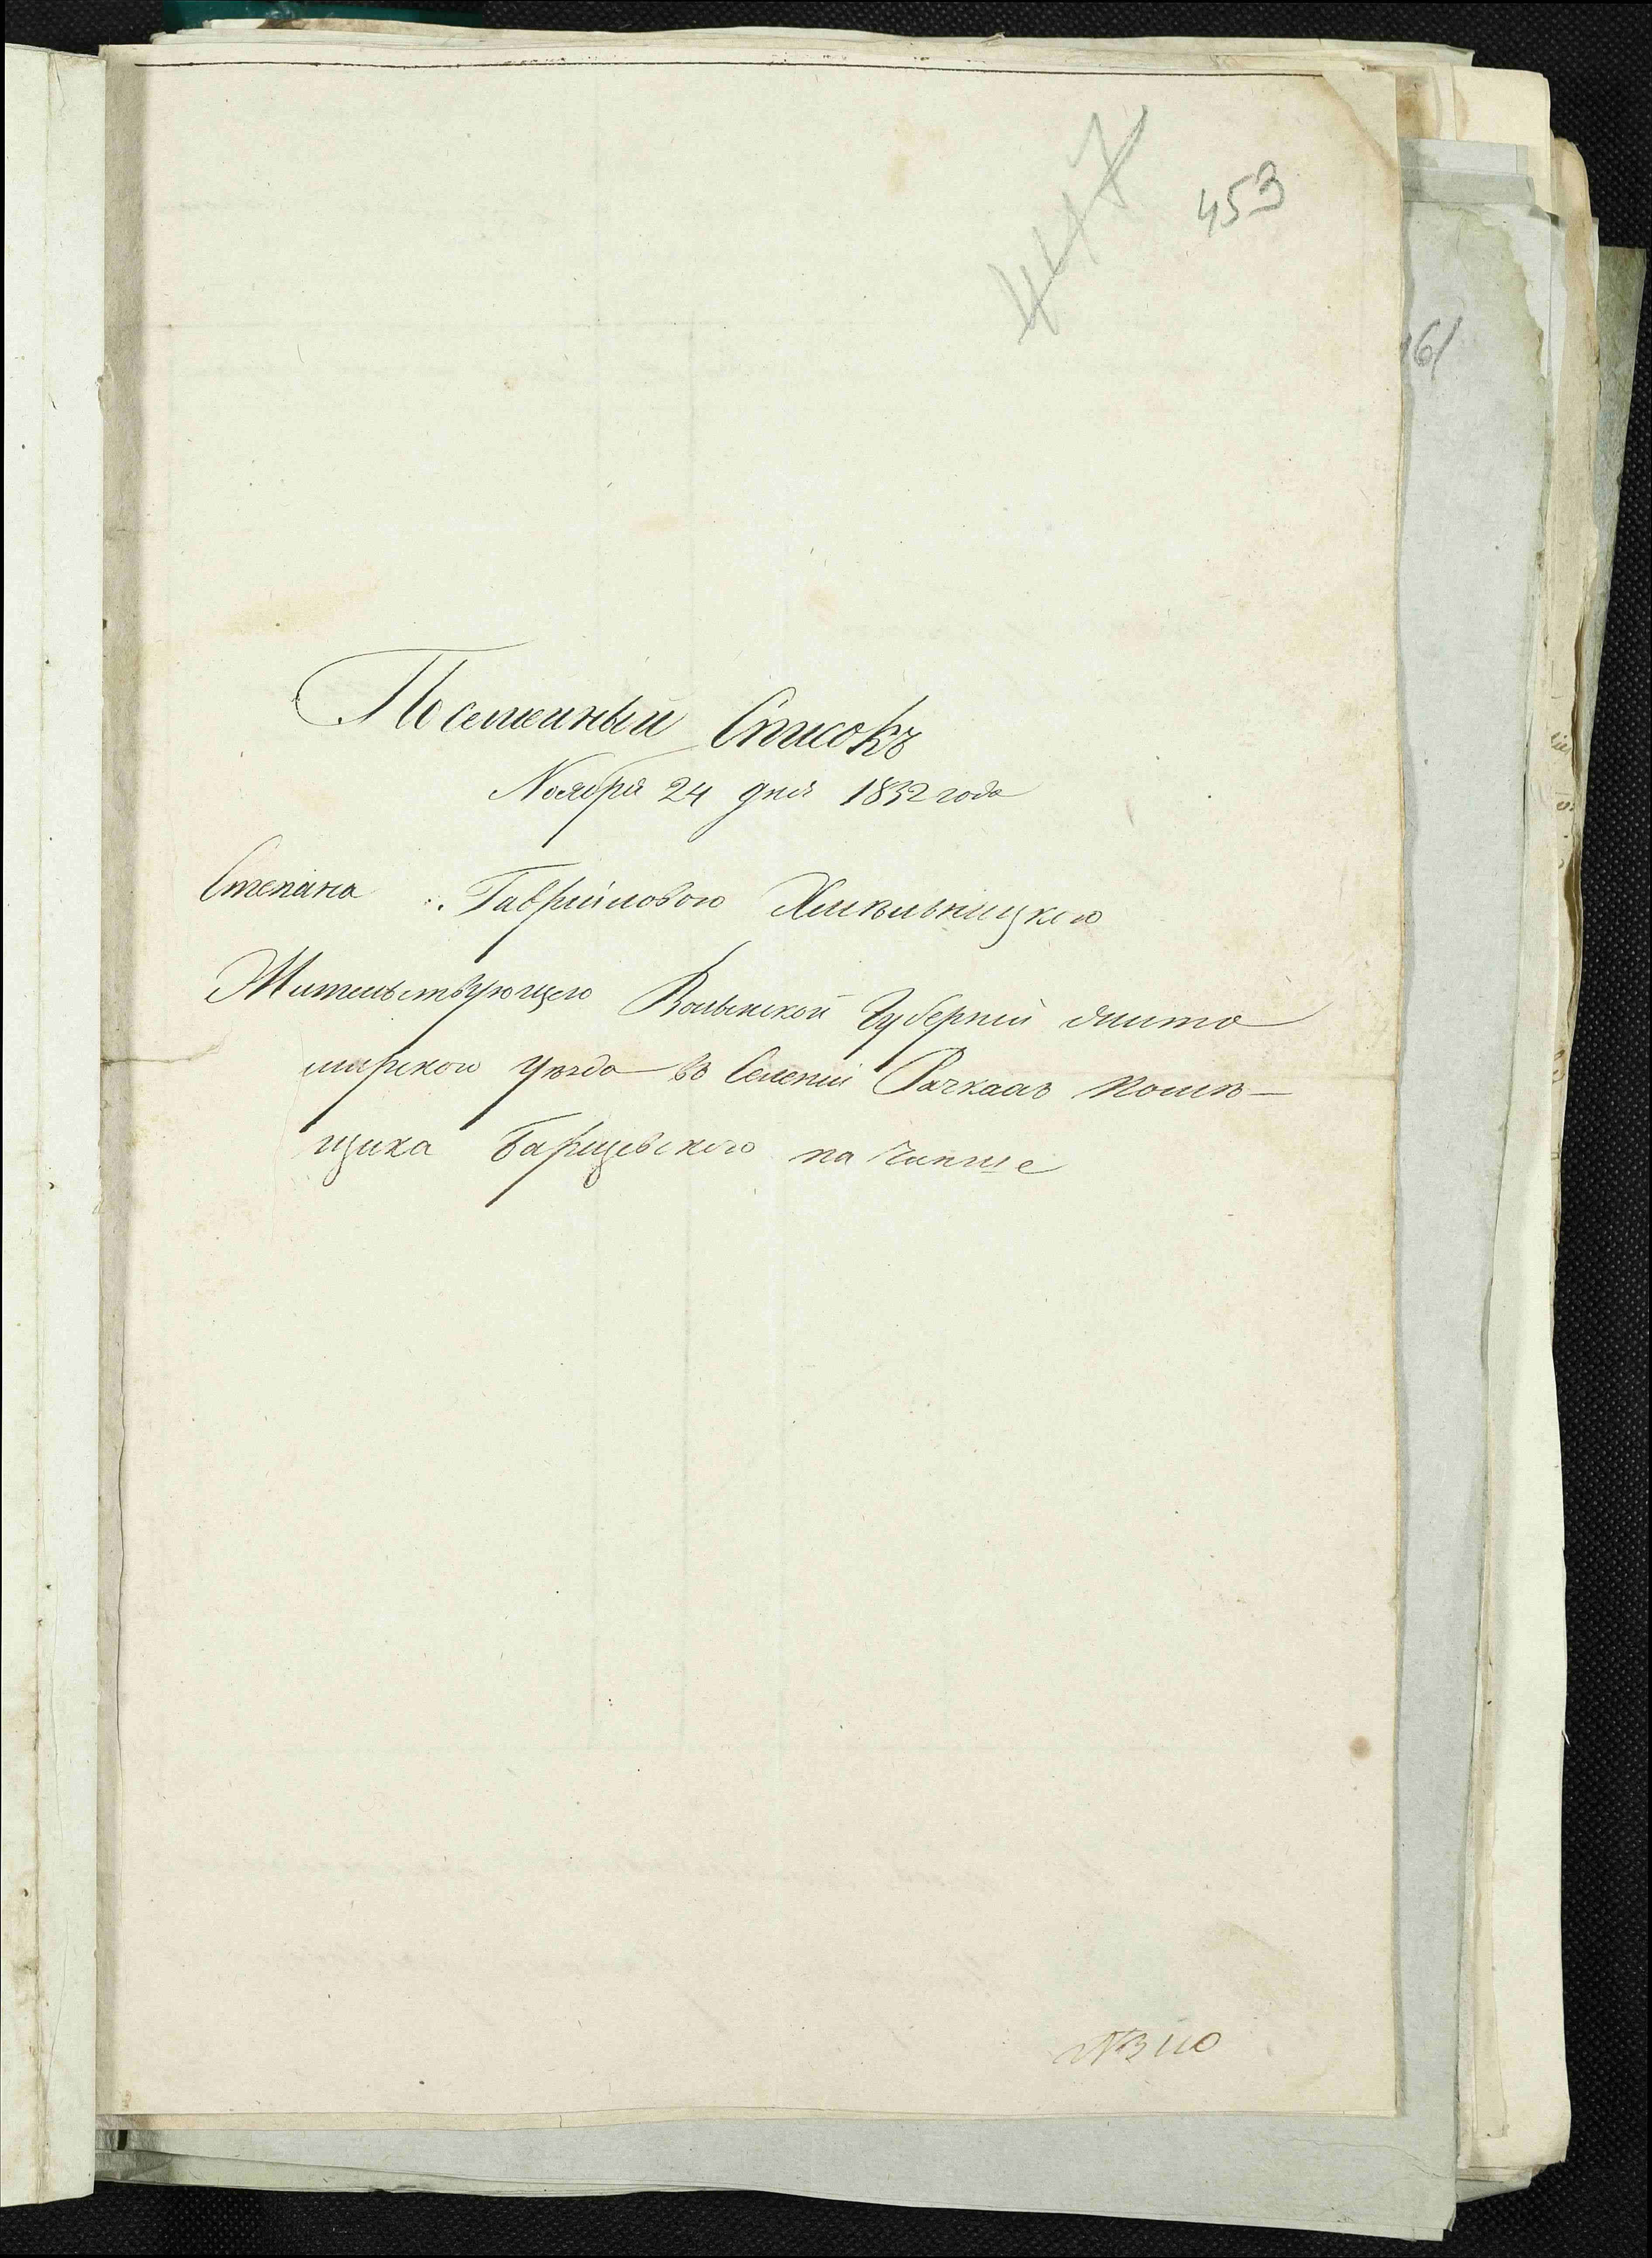 447
453
161
Посемейный Списокъ
Ноября 24 дня 1832 года
Степана Гавриілового Хмѣльницкого
Жительствующего Волынской Губерніи Жито
мирского уѣзда въ Селеніи Рачкахъ помѣ-
щика Барщевского на Чинше
№ 110